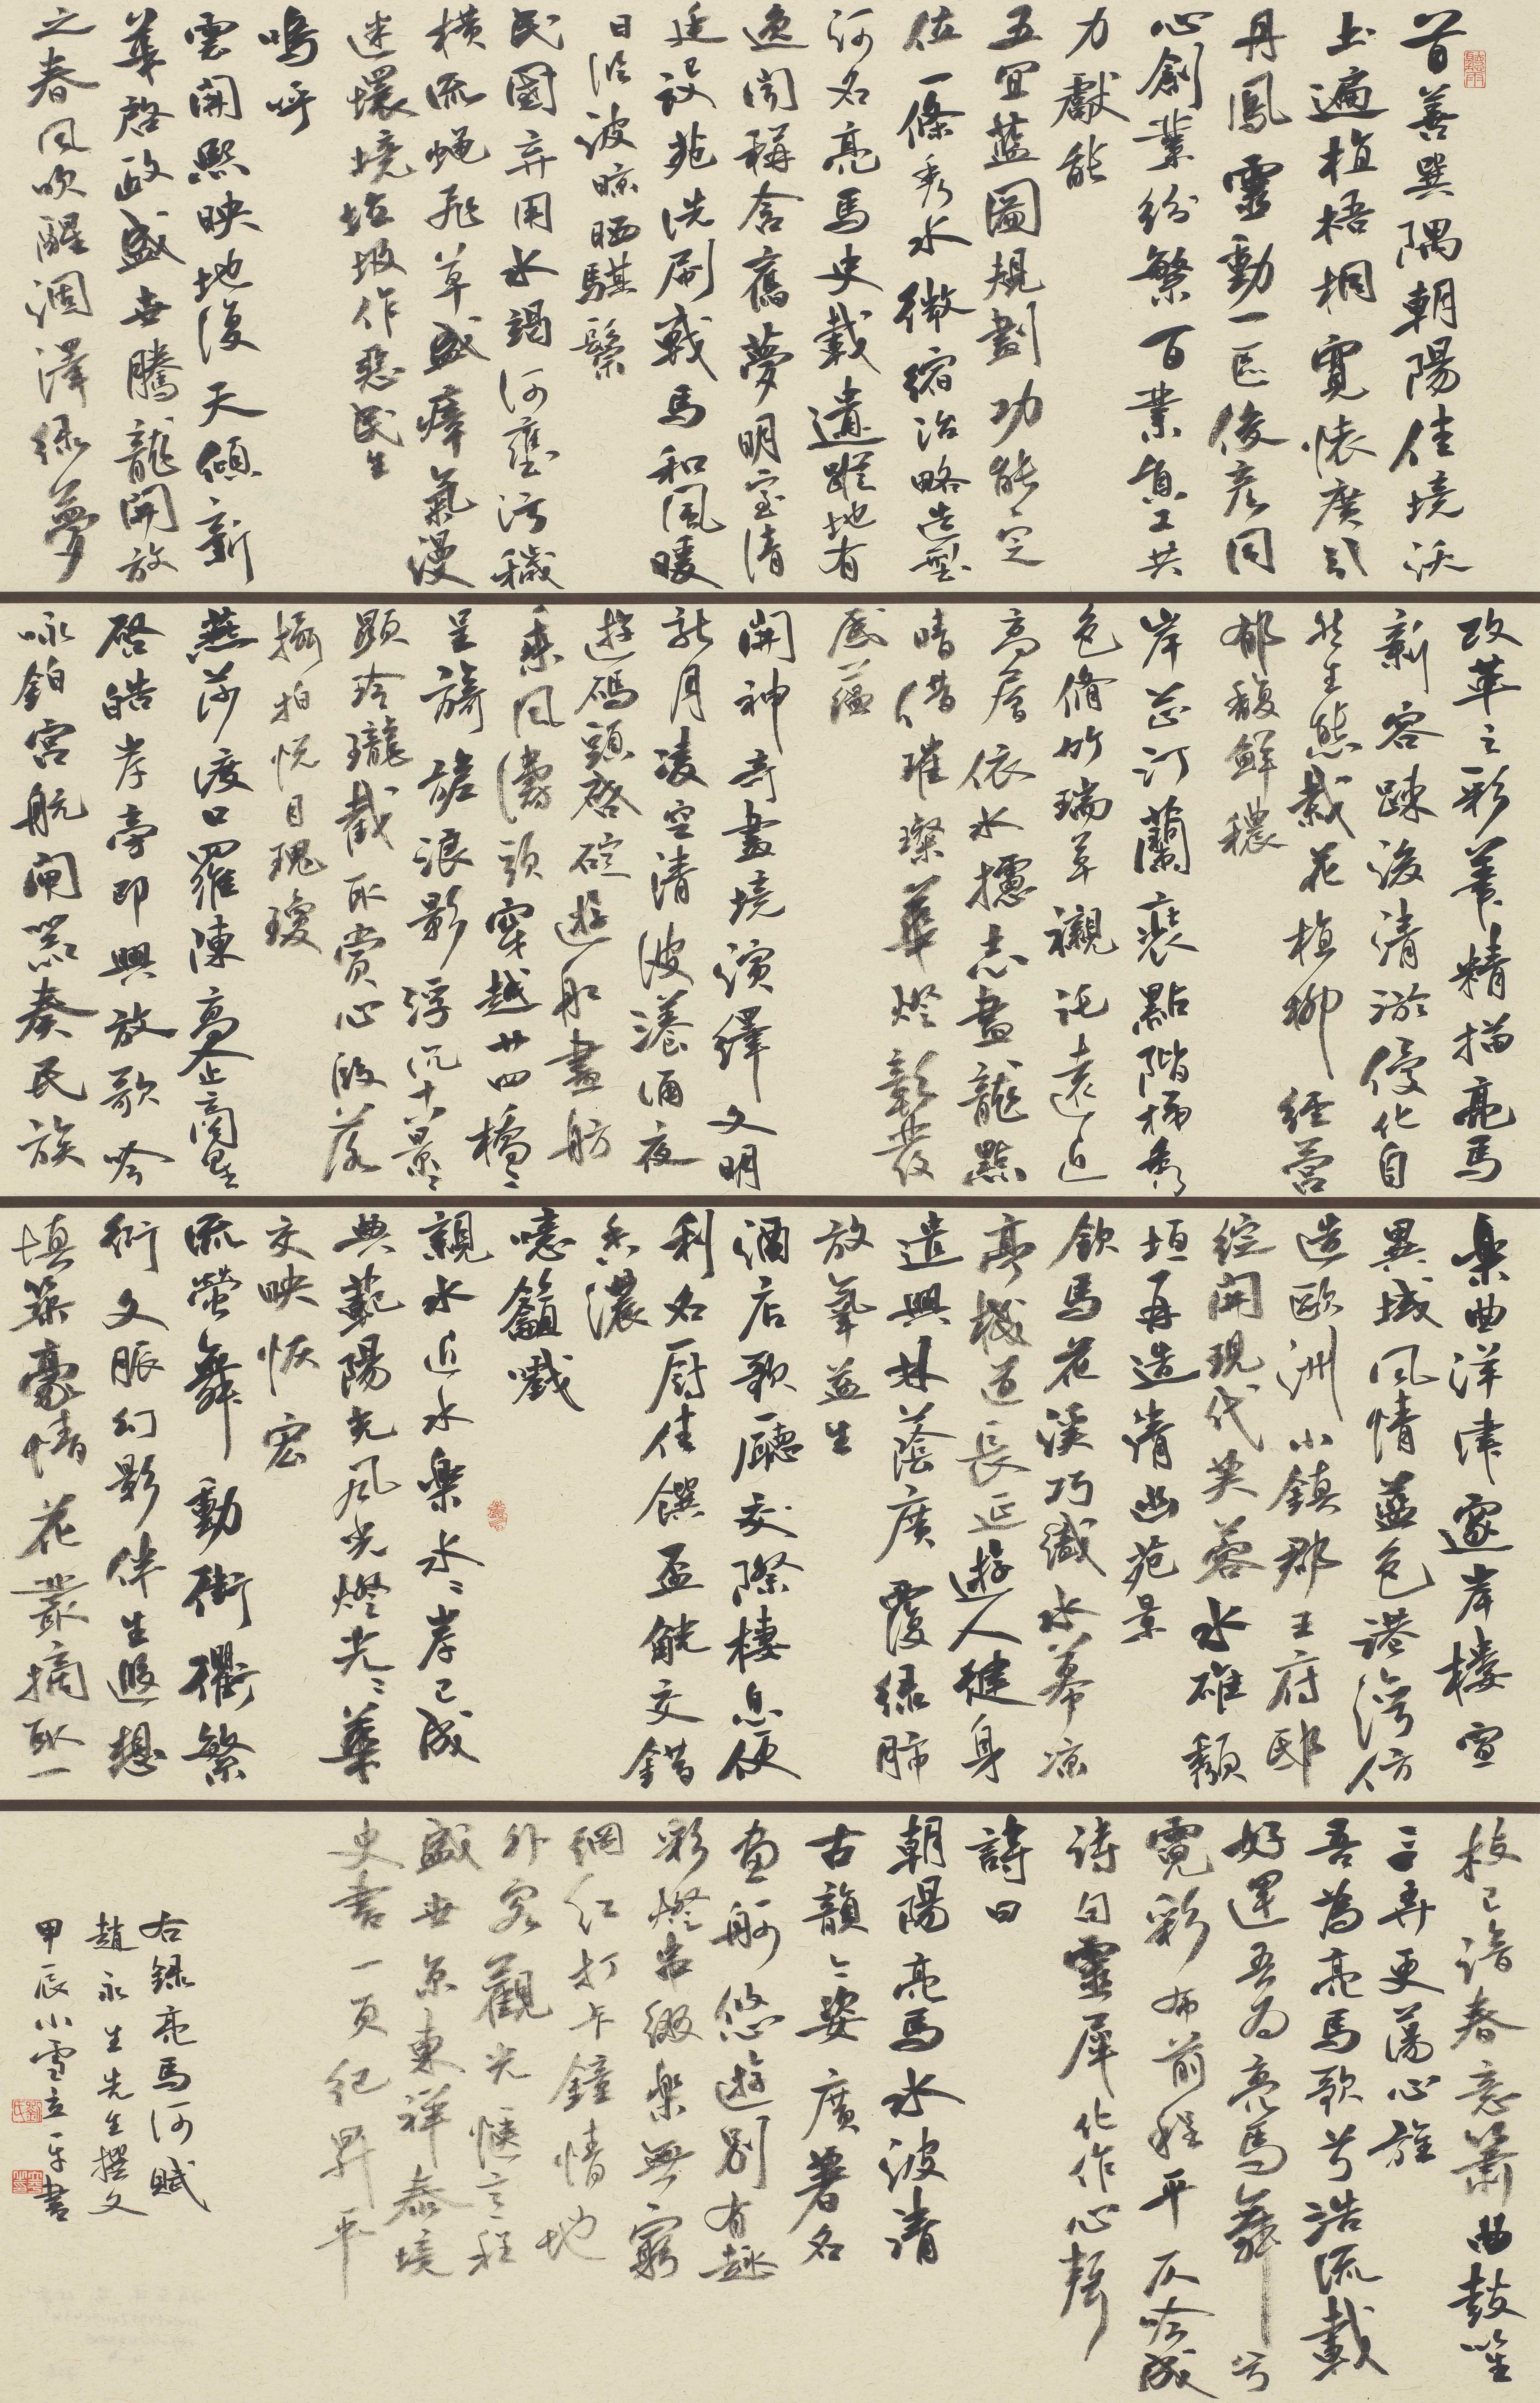 首善巽隅朝陽佳境沃
土遍植梧桐寬懷廣引
丹鳳靈動一區俊彥同
心創業紛繁百業員工共
力獻能
五宜藍圖規劃功能定
位一條秀水微縮治略造型
河名亮馬史載遺蹤地有
逸聞稱含舊夢明室清
廷已設苑洗刷戰馬和風暖
日沿波晾晒騏鬃
民國弃用水竭河壅污穢
橫流蠅飛草盛瘴氣漫
迷環境垃圾作惡民生
嗚呼
雲開熙映地復天傾新
華啓政盛世騰龍開放
之春風吹醒涸澤綠夢
改革之彩筆精描亮馬
新容疏浚清淤優化自
然生態栽花植柳經營
郁馥鮮穠
岸芷汀蘭裝點階梯秀
色脩竹瑞草襯託遠近
高層依水攄志畫龍點
睛借璀璨華燈彰發
底蘊
開神奇畫境演繹文明
新月凌空清波漾涌夜
遊碼頭啓碇遊船畫舫
乘風濤頭穿越廿四橋橋
呈旖旎浪影浮沉十八景景
顯玲瓏截取賞心段落
攝拍悅目瑰瓊
燕莎渡口羅陳高企商墅
啓皓岸旁即興放歌吟
咏鉑宮航閘器奏民族
樂曲洋津邃岸樓宣
異域風情藍色港灣仿
造歐洲小鎮郡王府邸
綻開現代芙蓉水碓頹
垣再造清幽苑景
飲馬花溪巧織水幕凉
亭棧道長延遊人健身
遣興林蔭廣覆綠肺
放氧益生
酒店歌廳交際棲息便
利名廚佳饌盃觥交錯
香濃
噫籲嚱
親水近水樂水水岸已成
典範陽光風光燈光光華
交映恢宏
流螢舞動街衢繁
衍文脈幻影伴生遐想
填築豪情花叢摘取一
枝已諳春意簫曲鼓笙
三弄更蕩心旌
吾為亮馬歌兮浩流載
好運吾為亮馬舞兮
霓彩布前程平仄吟成
詩句靈犀化作心聲
詩曰
朝陽亮馬水波清
古韻今姿廣著名
畫舸悠遊別有趣
彩燈串綴樂無窮
網紅打卡鐘情地
外客觀光愜意程
盛世京東祥泰境
史書一頁紀昇平
右錄亮馬河賦
趙永生先生撰文
甲辰小雪立平書